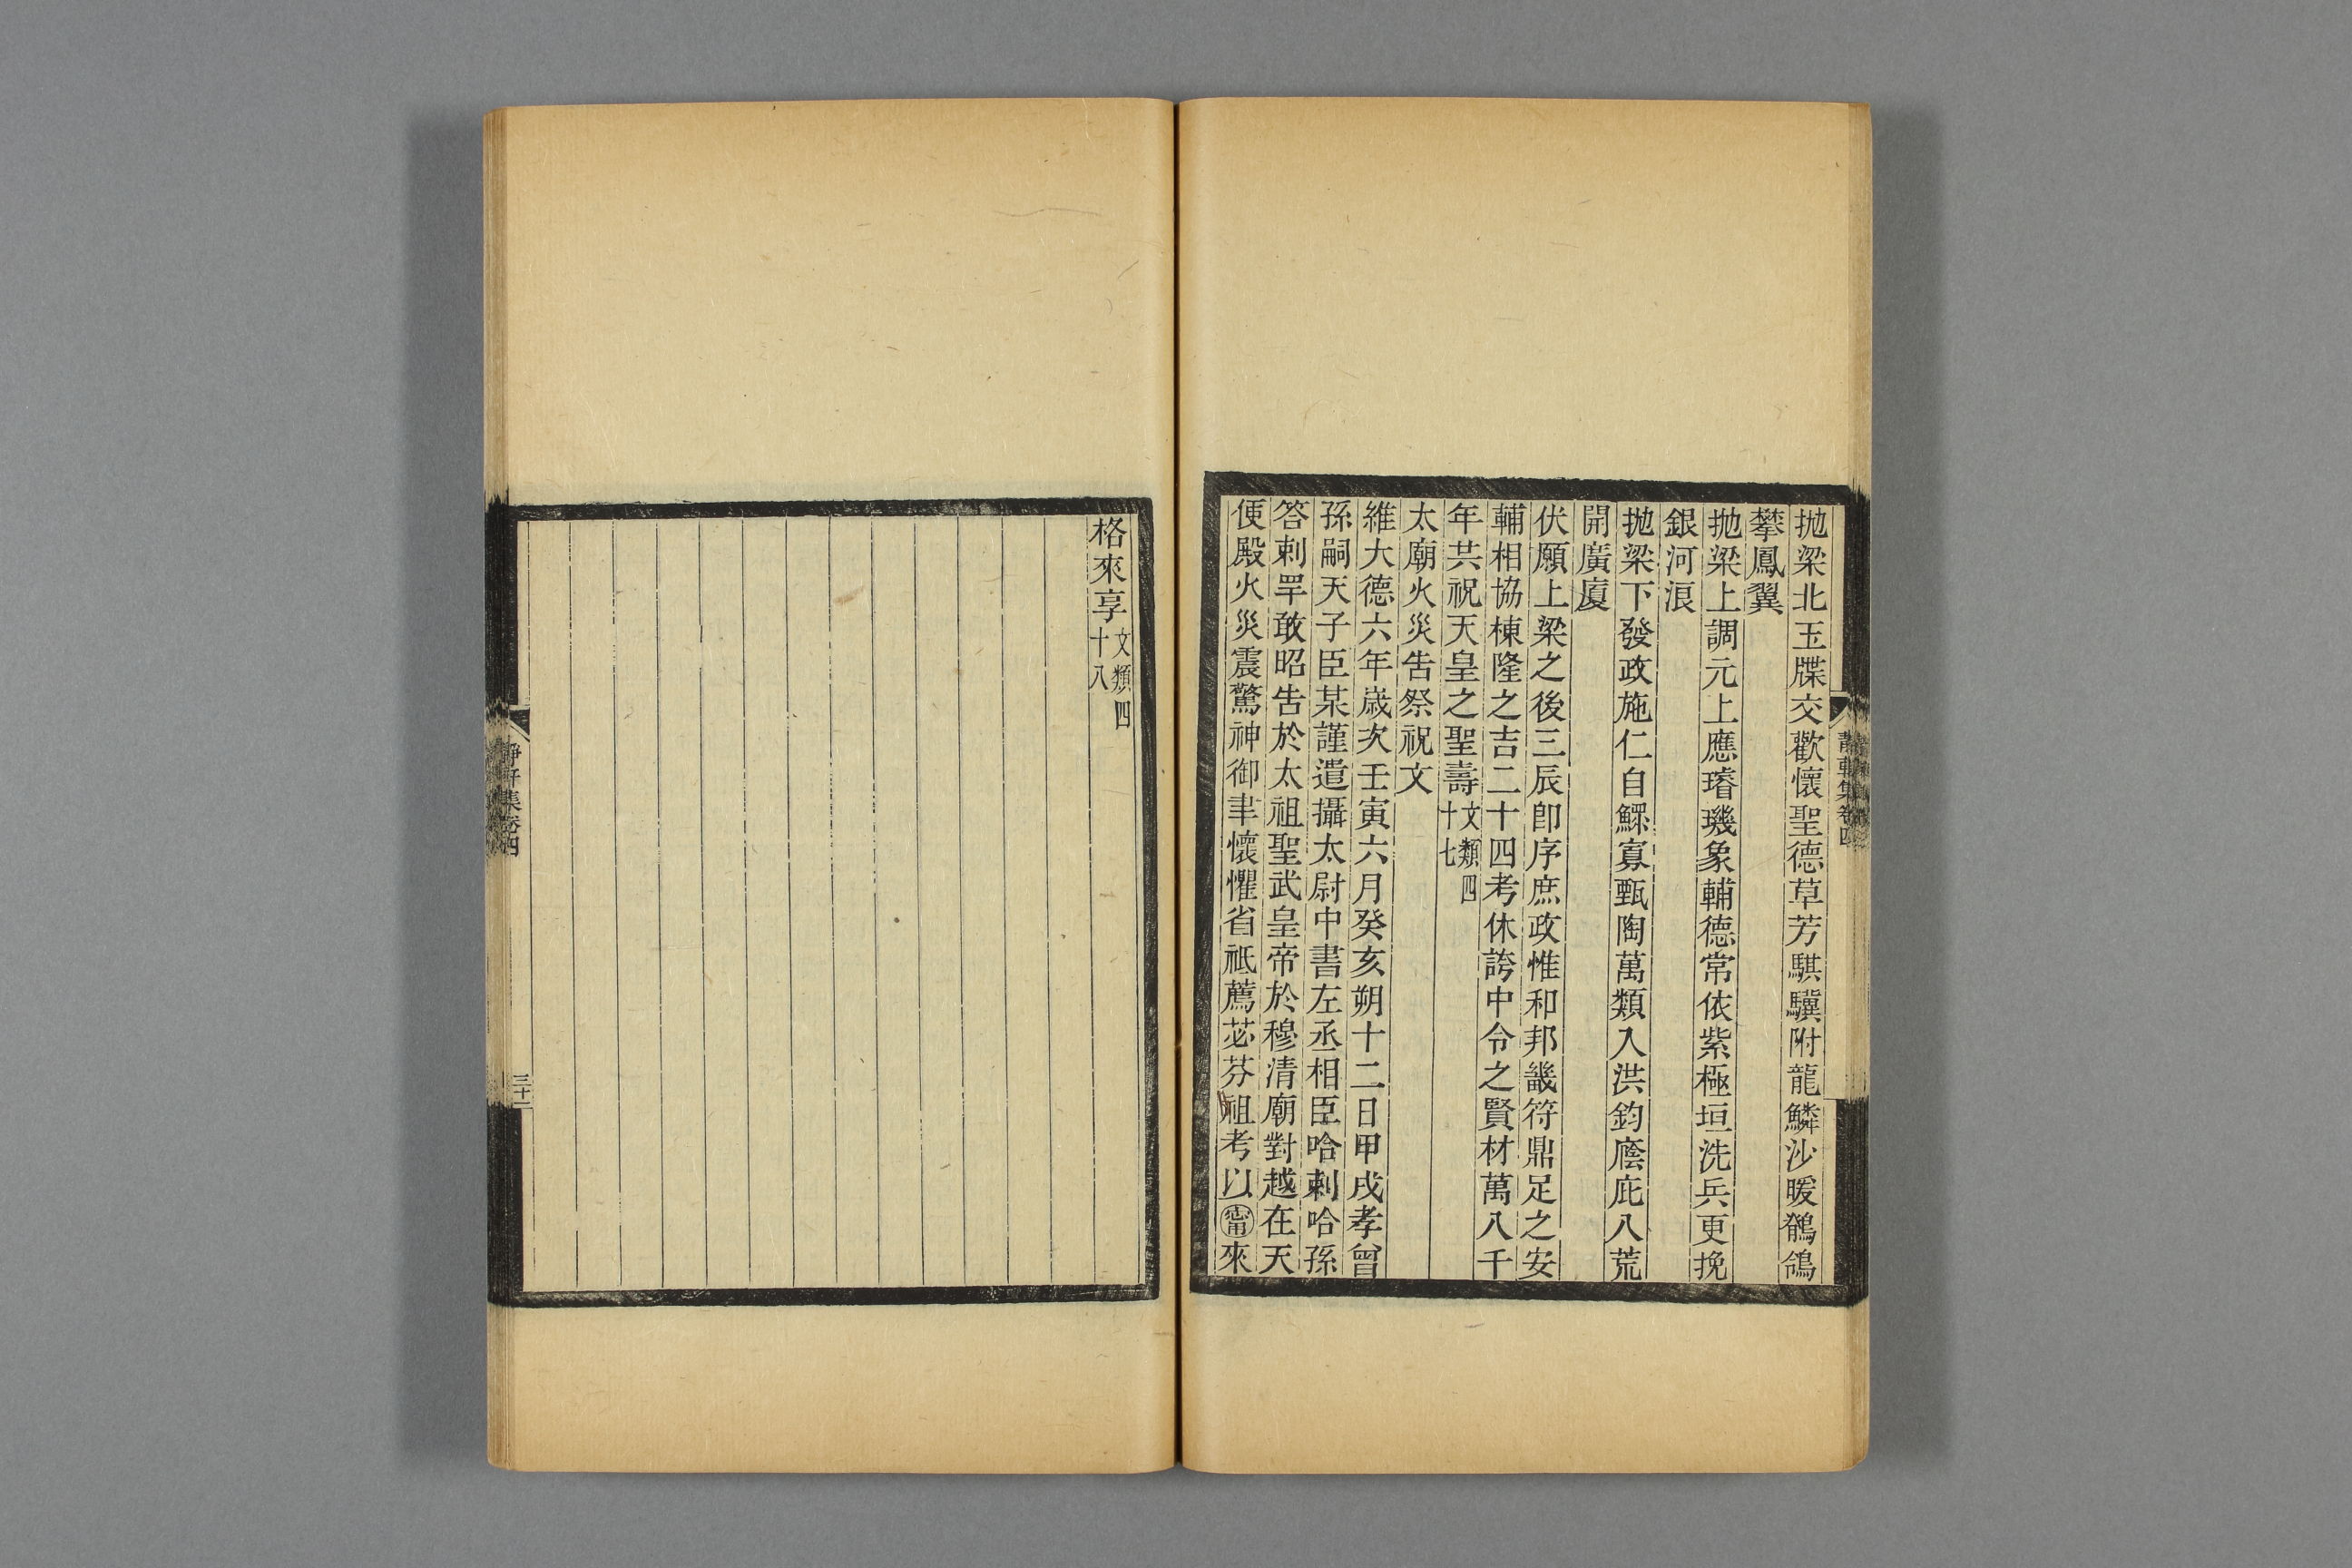 拋梁北玉牒交歡懷聖德草芳騏驥附龍鱗沙暖鶺鴒
攀鳳翼
拋梁上調元上應璿璣象輔德常依紫極垣洗兵更挽
銀河浪
拋梁下發政施仁自鰥寡甄陶萬類入洪鈞廕庇八荒
開廣廈
伏願上梁之後三辰卽序庶政惟和邦畿符鼎足之安
輔相協棟隆之吉二十四考休誇中令之賢材萬八千
年共祝天皇之聖壽文類四十七
太廟火災告祭祝文
維大德六年歲次壬寅六月癸亥朔十二日甲戌孝曾
孫嗣天子臣某謹遣攝太尉中書左丞相臣哈剌哈孫
答剌罕敢昭告於太祖聖武皇帝於穆清廟對越在天
便殿火災震驚神御聿懷懼省祗薦苾芬祖考以甯來
靜軒集卷四
格來享文類四十八
靜軒集卷四
三十一